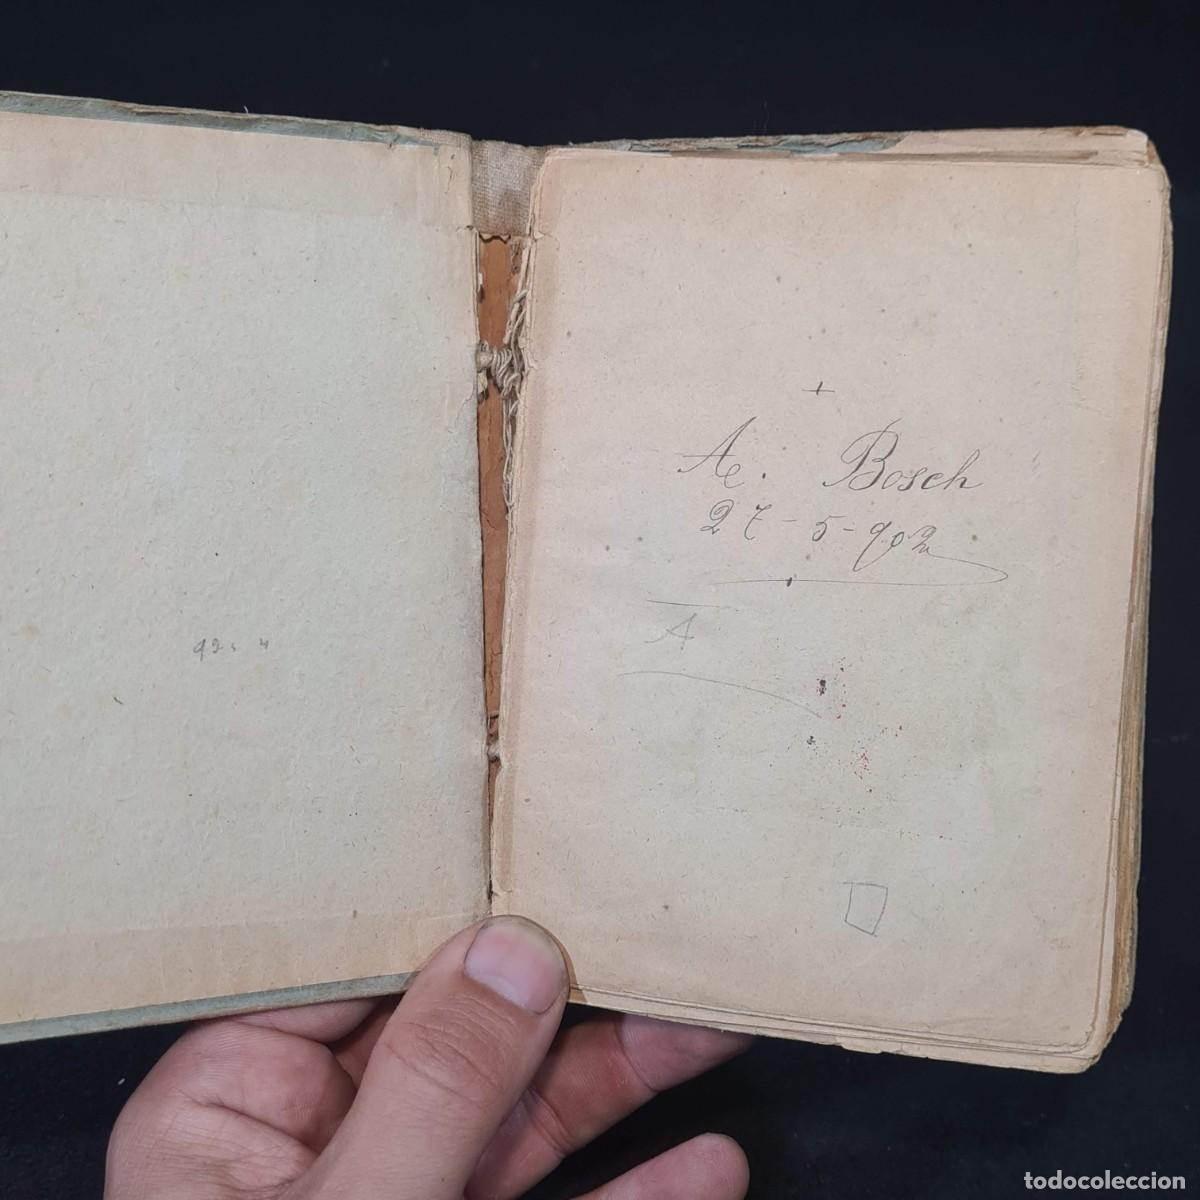 +
Ae. Bosch
27-5-902
A
todocoleccion